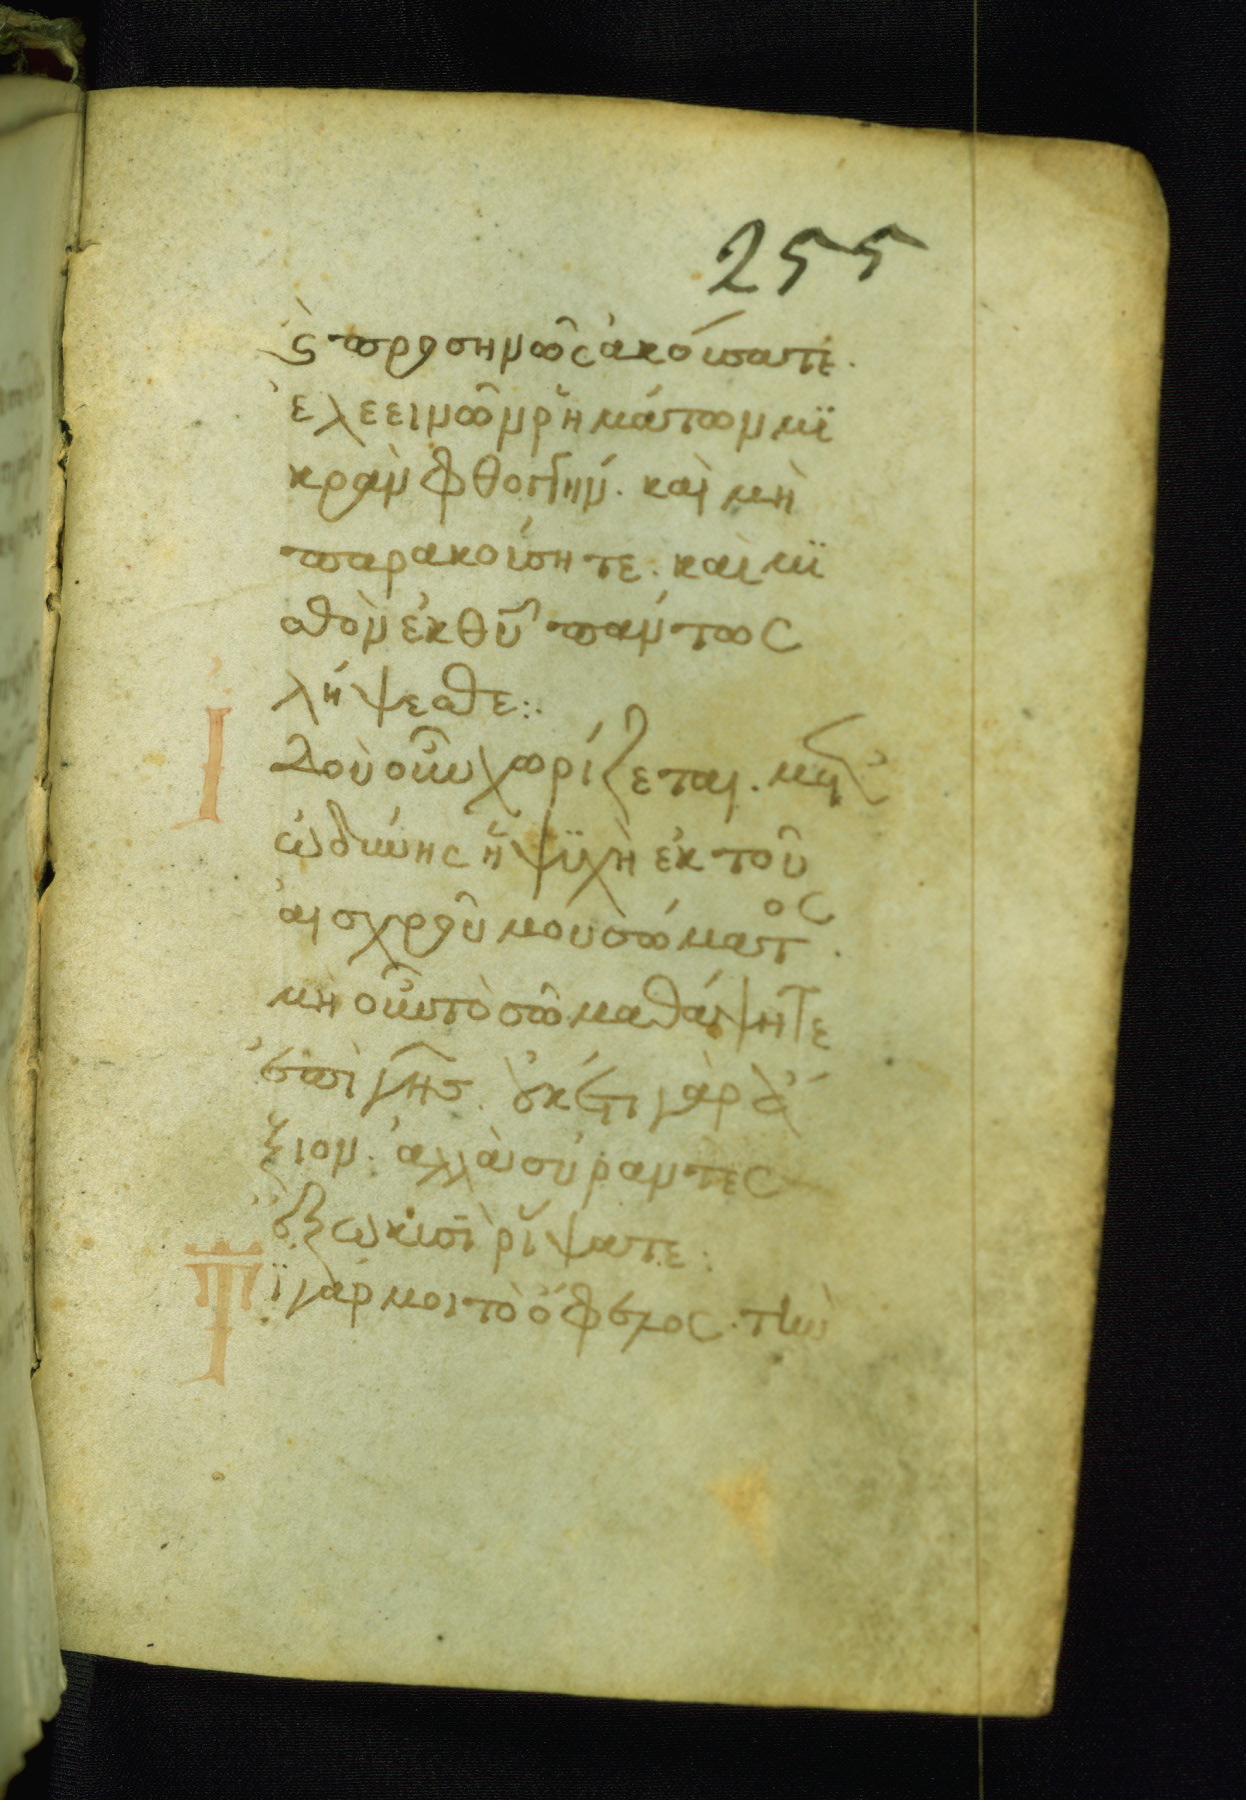 255
ς προσημῶς ἀκούσατέ.
ἐλεεινῶν ρἥμάτων μϊ
κρὰν φθογγήν. καὶ μὴ
παρακούσητε. καὶ μϊ
σθὸν ἐκ θῦ πάντως
λήψεσθε:.
Ἰδοὺ οὖν χωρίζεται. μετ᾽
ὠδύνης ἥ ψϋχὴ ἐκ τοῦ
αἰσχροῦ μου σώματος.
μὴ οὖν τὸ σῶμα θάψητε
ἐπὶ γῆς. οὐκ ἔστι γὰρ ἄ
ξιον. ἀλλὰ σύραντες
ἔξω κυσὶ ρἵψατε:
Τϊ γάρ μοι τὸ ὄφελος. τὴν